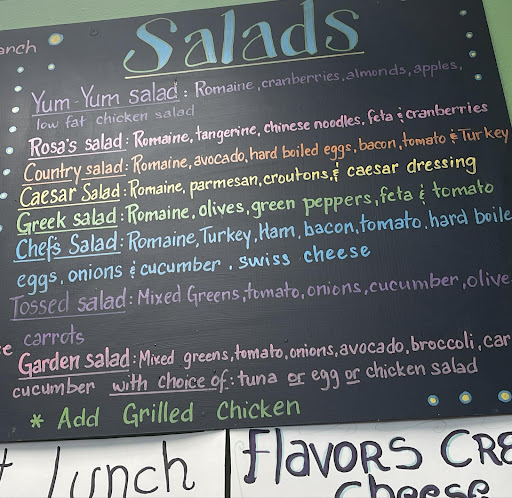 anch
Salads
Yum-Yum salad: Romaine, cranberries, almonds, apples,
low fat chicken salad
Rosa's salad: Romaine, tangerine, chinese noodles, feta & cranberries
Country salad: Romaine, avocado, hard boiled eggs, bacon, tomato & Turkey
Caesar Salad: Romaine, parmesan, croutons, & caesar dressing
Greek salad: Romaine, olives, green peppers, feta & tomato
Chef's Salad: Romaine, Turkey, Ham, bacon, tomato, hard boile
eggs, onions & cucumber, swiss cheese
Tossed salad: Mixed Greens, tomato, onions, cucumber, olive
carrots
e
Garden salad: Mixed greens, tomato, onions, avocado, broccoli, car
cucumber with choice of: tuna or egg or chicken salad
* Add Grilled Chicken
t lunch
Flavors CRE
Cheese